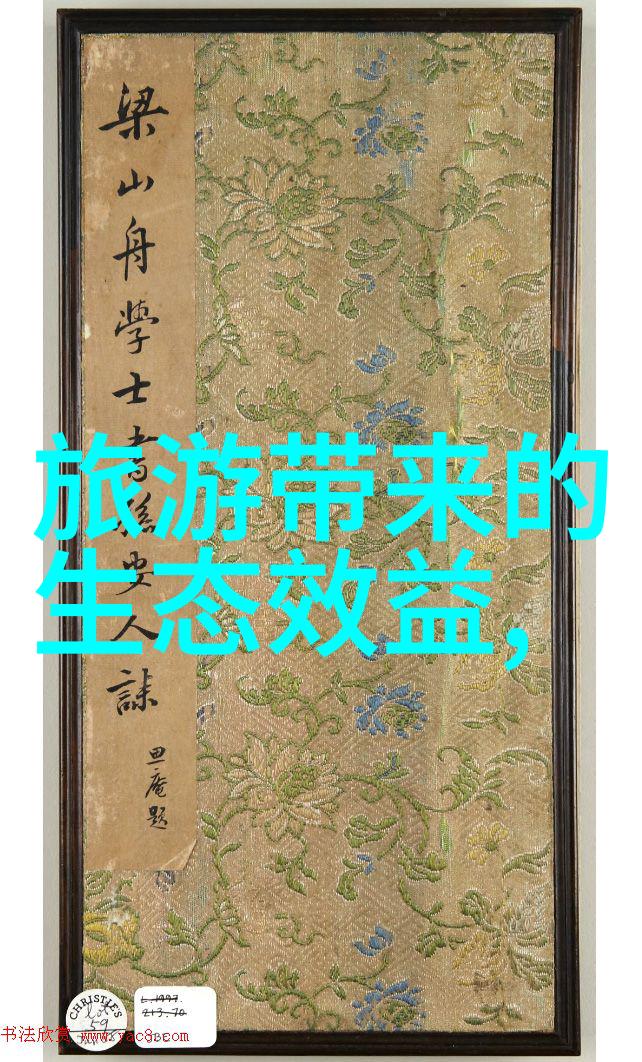 梁山舟學士書孫安人誄
思庵題
旅游带来的
生态效益,
CHRISTIE'S
lot
59
L.1997.
213.70
书法欣赏 www.yac8.com